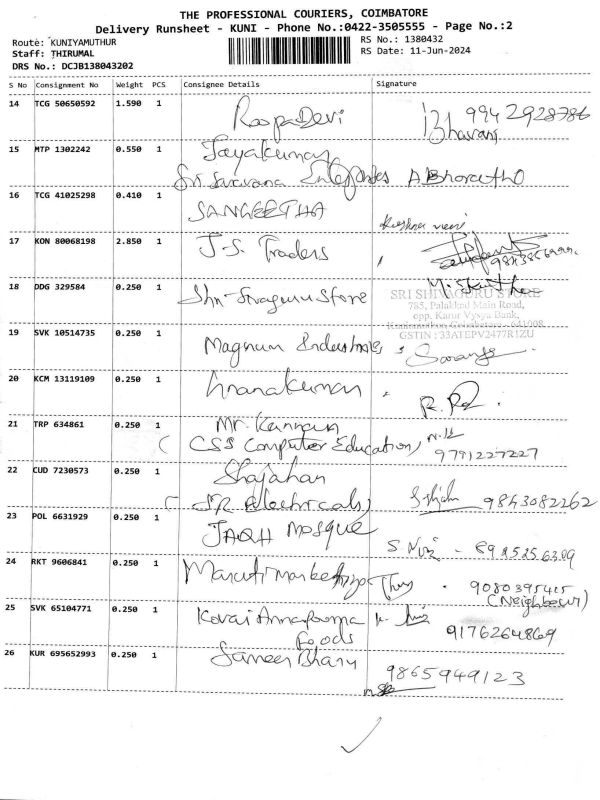 THE PROFESSIONAL COURIERS, COIMBATORE
Delivery Runsheet - KUNI - Phone No.:0422-3505555 - Page No.:2
Route: KUNIYAMUTHUR
RS No.: 1380432
Staff: THIRUMAL
RS Date: 11-Jun-2024
DRS No.: DCJB138043202
S No Consignment No Weight PCS Consignee Details Signature
14 TCG 50650592 1.590 1 RoopaDevi 9942928786
15 MTP 1302242 0.550 1 Jayakumar
Sri Saravana
16 TCG 41025298 0.410 1 SANGEETHA
17 KON 80068198 2.850 1 J.S. Traders
18 DDG 329584 0.250 1 Store
SRI SHIVAGURU STORE
785, Palakkad Main Road,
opp. Karur Vysya Bank,
GSTIN : 33ATEPV2477R1ZU
19 SVK 10514735 0.250 1 Magnum Industries
20 KCM 13119109 0.250 1
21 TRP 634861 0.250 1 Mr. Kannan
(CSS Computer Education) 9791227227
22 CUD 7230573 0.250 1 Shajahan
(SR Electricals) 9843082262
23 POL 6631929 0.250 1 JAQH MOSQUE
24 RKT 9606841 0.250 1 Maruti Marketing 9080395415
(Neighbour)
25 SVK 65104771 0.250 1 Kovai Annapoorna
Foods 9176264869
26 KUR 695652993 0.250 1 Sameer Bhanu
9865949123